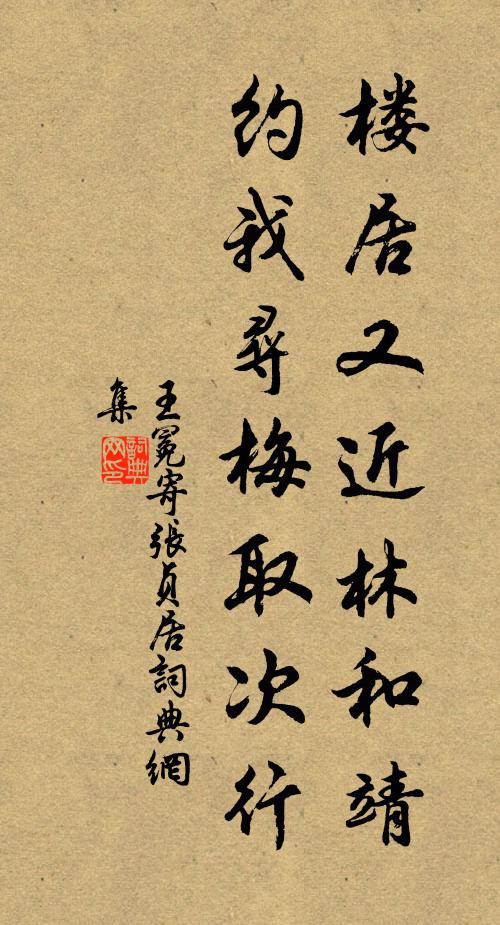 楼居又近林和靖
约我尋梅取次行
王冕寄張貞居詞典網
集
詞典
网印